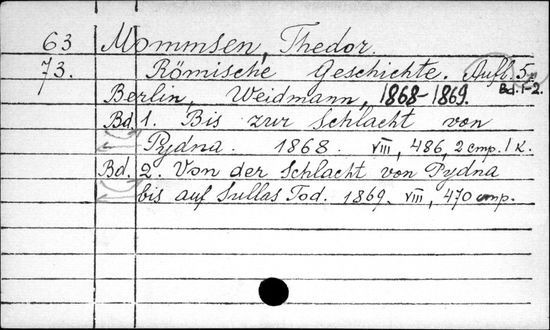 63 Mommsen, Thedor.
73. Römische Geschichte. Aufl. 5,
Bd. 1-2.
Berlin, Weidmann, 1868-1869.
Bd 1. Bis zur Schlacht von
Pydna. 1868. VIII, 486, 2 стр. 1 к.
Bd. 2. Von der Schlacht von Pydna
bis auf Sullas Tod. 1869. VIII, 470 стр.